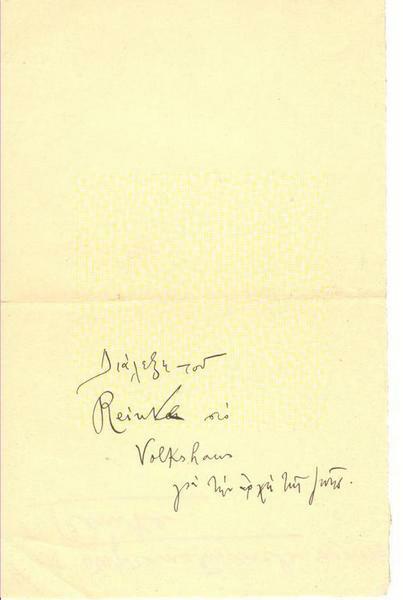 Διάλεξε τοῦ
Reinke στὸ
Volkshaus
γιὰ τὴν ἀρχὴ τῆς ζωῆς.